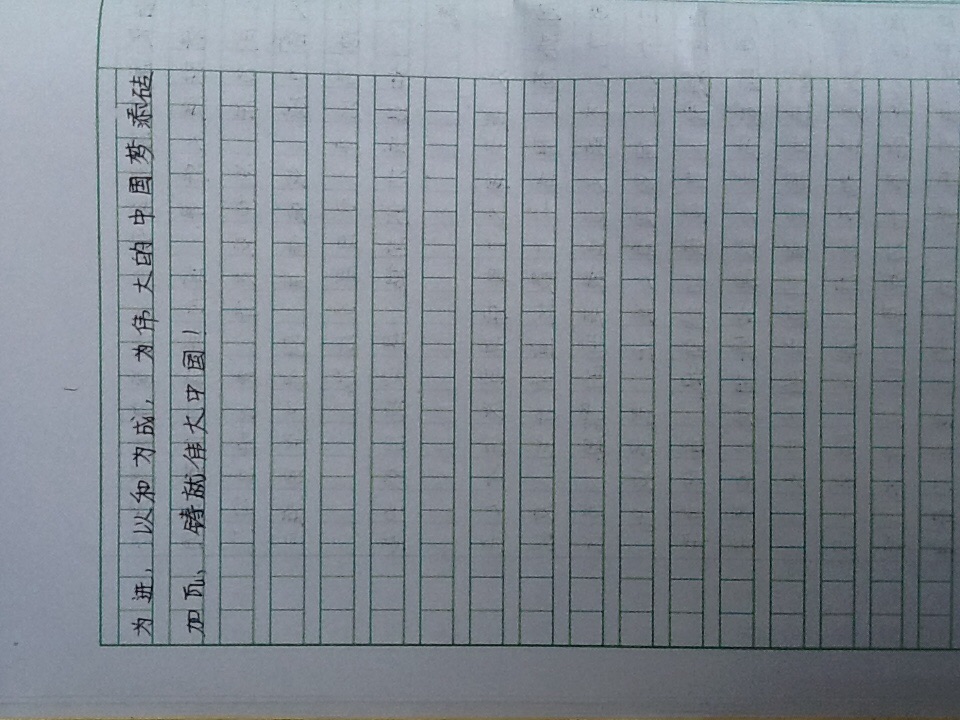 为进，以和为成，为伟大的中国梦添砖
加瓦、铸就伟大中国！